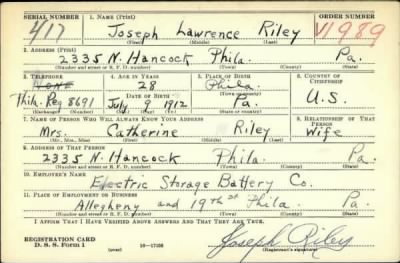 SERIAL NUMBER 1. NAME (Print) ORDER NUMBER
417 Joseph Lawrence Riley V1989
(First) (Middle) (Last)
2. ADDRESS (Print)
2335 N. Hancock Phila. Pa.
(Number and street or R. F. D. number) (Town) (County) (State)
3. TELEPHONE 4. AGE IN YEARS 5. PLACE OF BIRTH 6. COUNTRY OF CITIZENSHIP
28 Phila.
DATE OF BIRTH (Town or county)
Phila. Reg 8691 July 9 1912 Pa. U.S.
(Exchange) (Number) (Mo.) (Day) (Yr.) (State or country)
7. NAME OF PERSON WHO WILL ALWAYS KNOW YOUR ADDRESS 8. RELATIONSHIP OF THAT PERSON
Mrs. Catherine Riley Wife
(Mr., Mrs., Miss) (First) (Middle) (Last)
9. ADDRESS OF THAT PERSON
2335 N. Hancock Phila. Pa.
(Number and street or R. F. D. number) (Town) (County) (State)
10. EMPLOYER'S NAME
Electric Storage Battery Co.
11. PLACE OF EMPLOYMENT OR BUSINESS
Allegheny and 19th St Phila. Pa.
(Number and street or R. F. D. number) (Town) (County) (State)
I AFFIRM THAT I HAVE VERIFIED ABOVE ANSWERS AND THAT THEY ARE TRUE.
REGISTRATION CARD
D. S. S. Form 1 (over) 16—17105 Joseph Riley
(Registrant's signature)